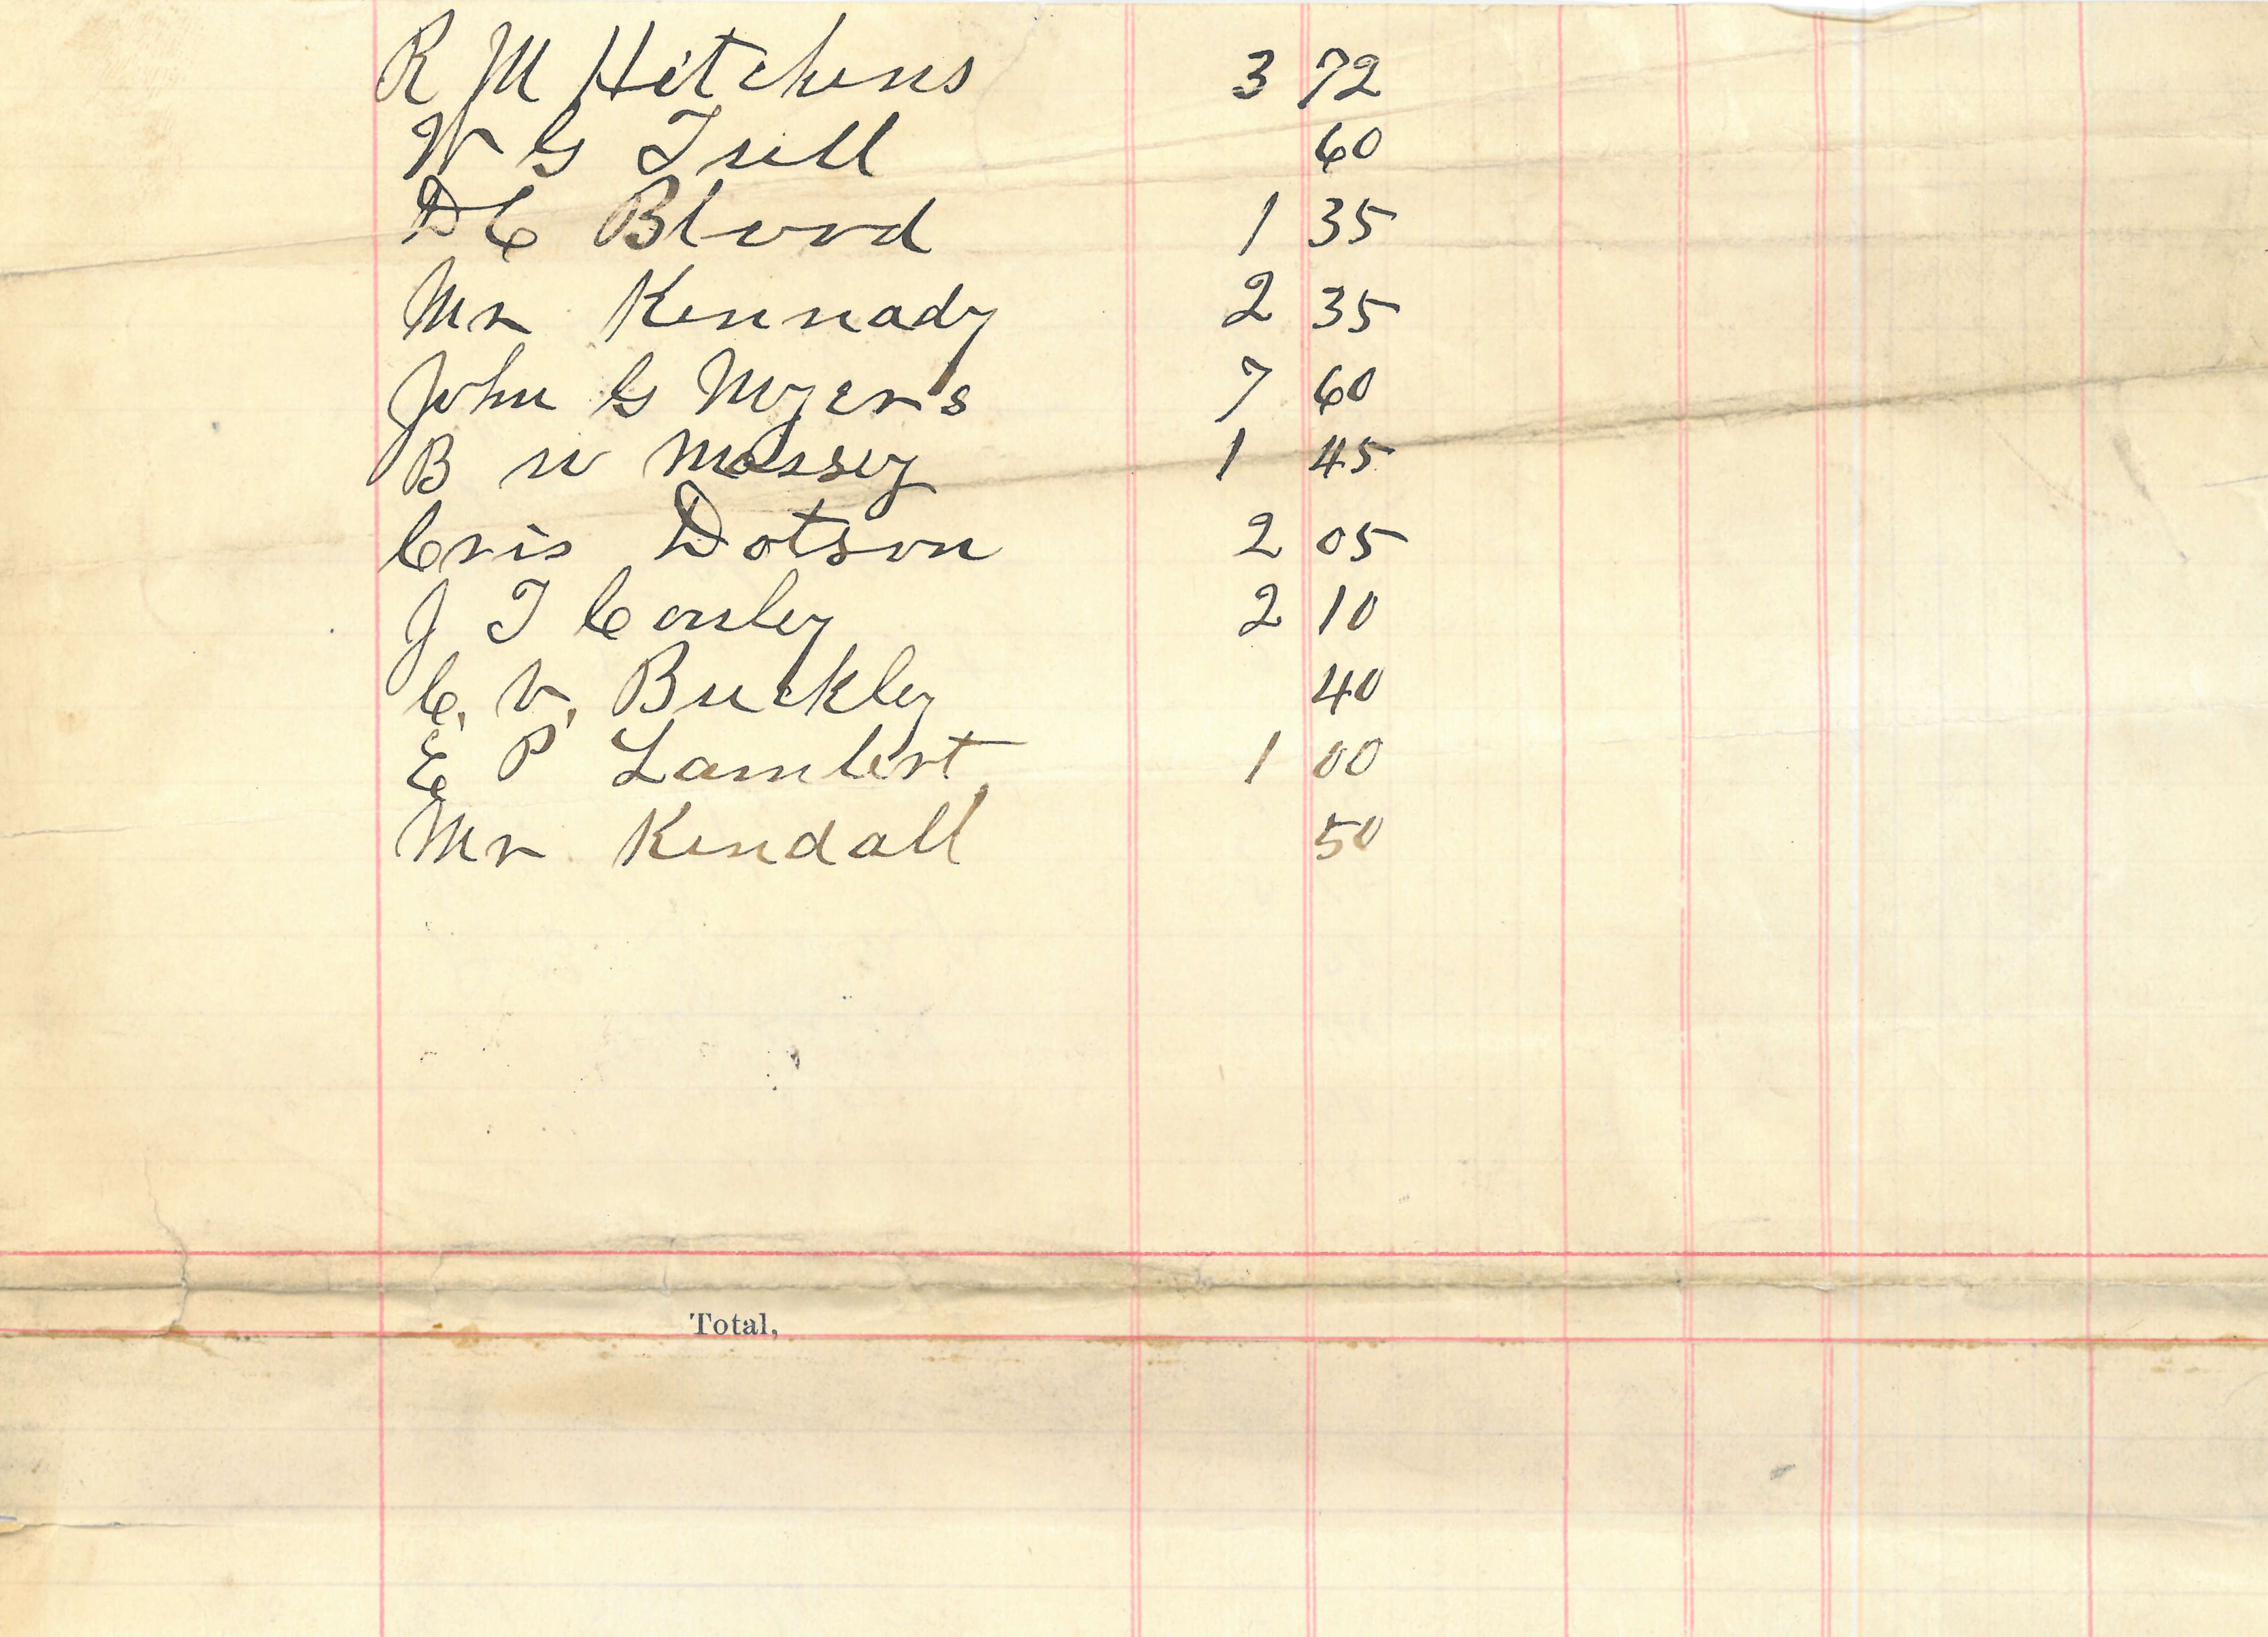 R M Hitchens 3 72
W G Trell 60
D C Blood 1 35
Mr Kennady 2 35
John G Myers 7 60
B W Massey 1 45
Cris Dotson 2 05
J T Conley 2 10
C. V. Buckley 40
E P Lambert 1 00
Mr Kendall 50
Total,